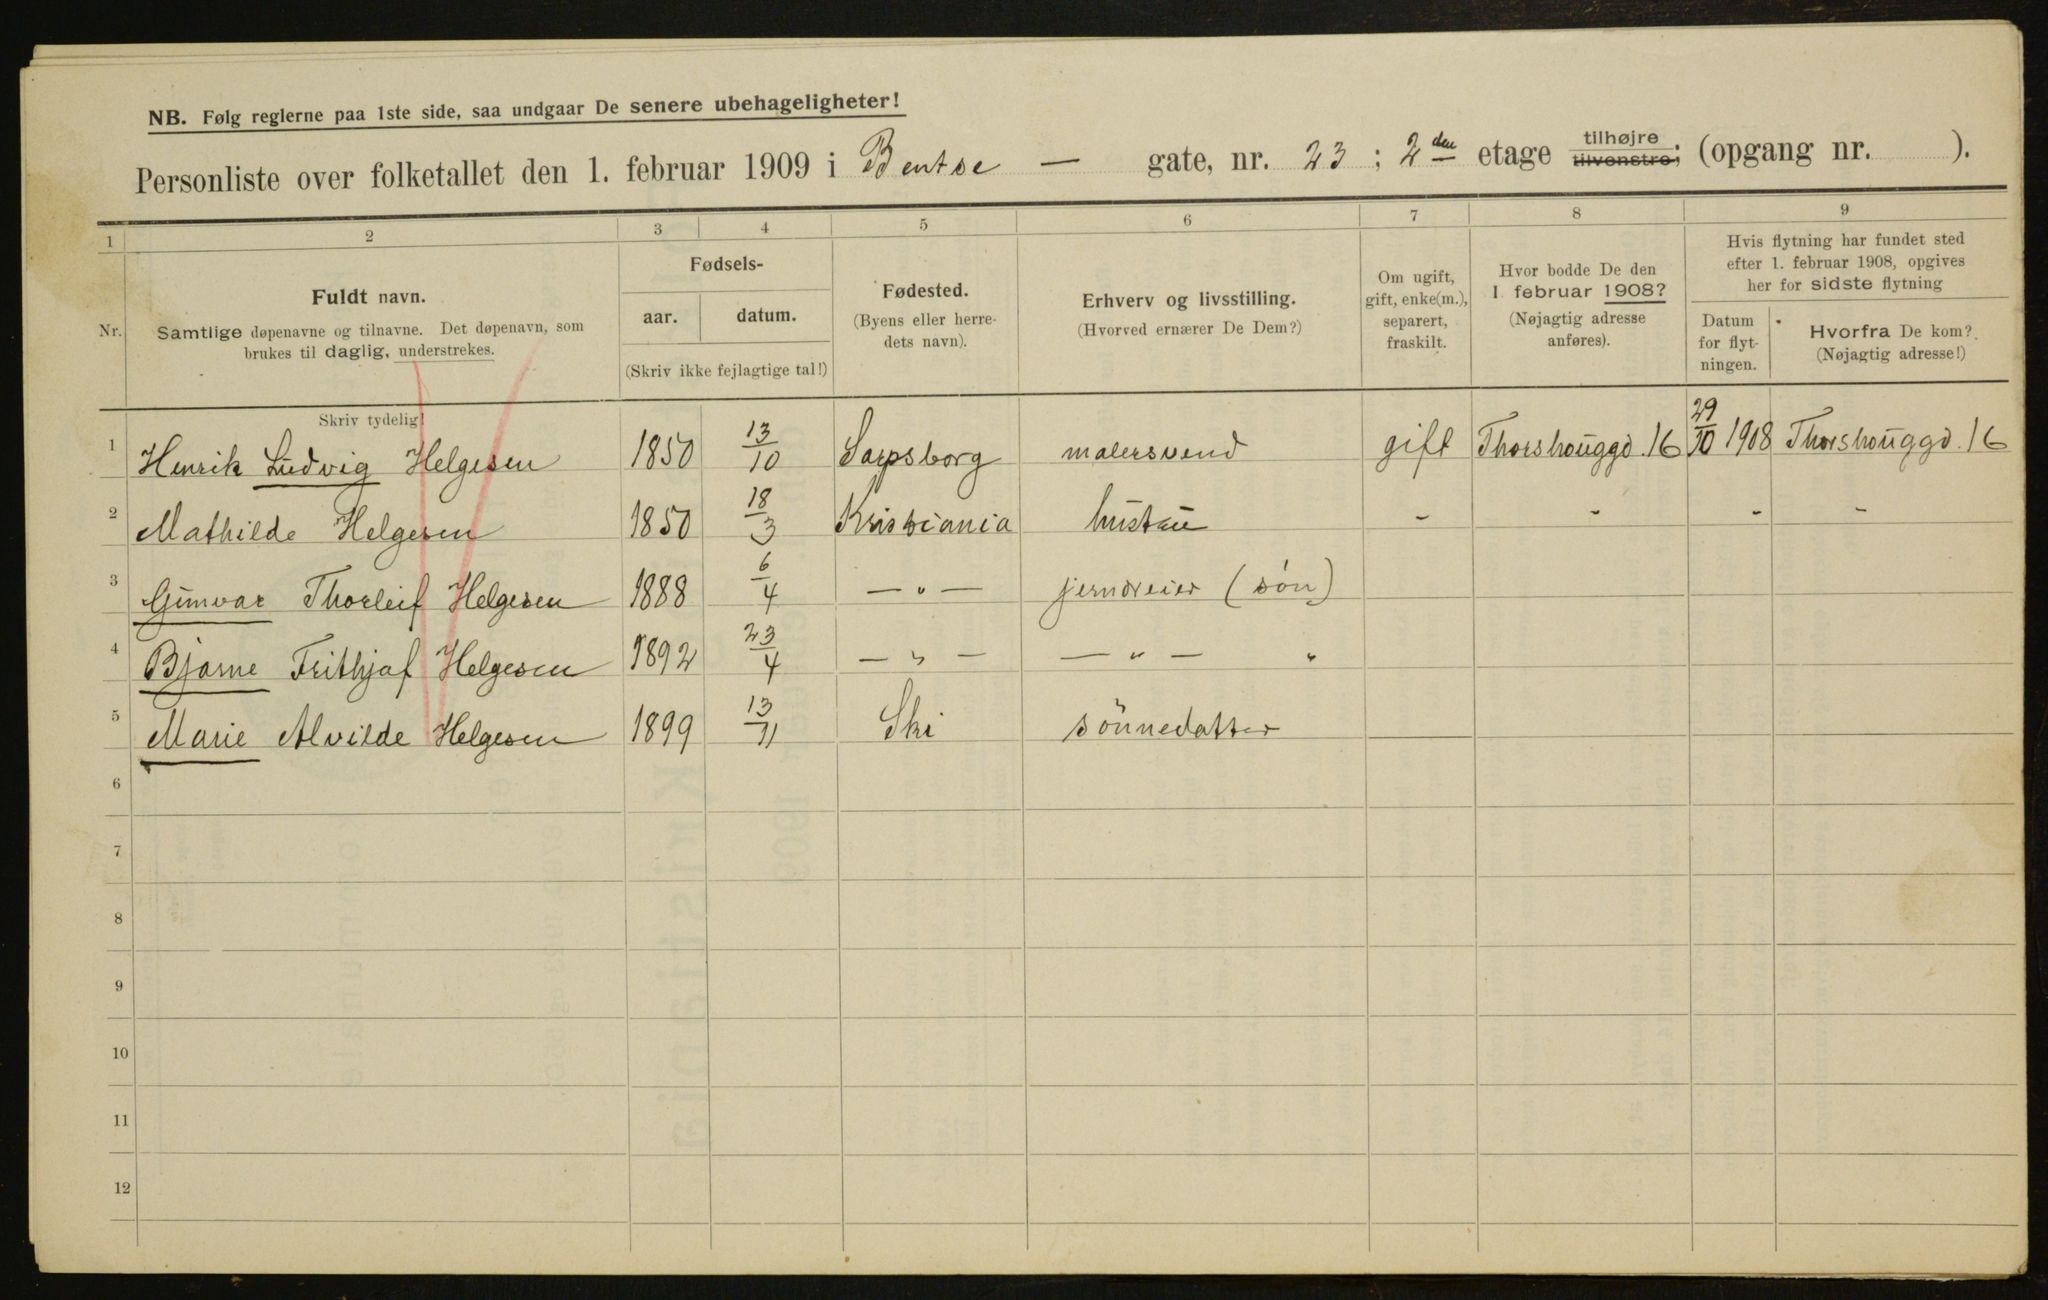 NB. Følg reglerne paa 1ste side, saa undgaar De senere ubehageligheter!
Personliste over folketallet den 1. februar 1909 i Bentse — gate, nr. 23 ; 2den etage tilhøjre tilvenstre; (opgang nr. ).
1 2 3 4 5 6 7 8 9
Nr.
Fuldt navn.
Samtlige døpenavne og tilnavne. Det døpenavn, som
brukes til daglig, understrekes.
Fødsels-
aar. datum.
(Skriv ikke fejlagtige tal!)
Fødested.
(Byens eller herre-
dets navn).
Erhverv og livsstilling.
(Hvorved ernærer De Dem?)
Om ugift,
gift, enke(m.),
separert,
fraskilt.
Hvor bodde De den
1 februar 1908?
(Nøjagtig adresse
anføres).
Hvis flytning har fundet sted
efter 1. februar 1908, opgives
her for sidste flytning
Datum
for flyt-
ningen.
Hvorfra De kom?
(Nøjagtig adresse!)
Skriv tydelig!
1 Henrik Ludvig Helgesen 1850 13/10 Sarpsborg malersvend gift Thorshauggd. 16 29/10 1908 Thorshauggd. 16
2 Mathilde Helgesen 1850 18/3 Kristiania hustru " " " "
3 Gunvar Thorleif Helgesen 1888 6/4 — " — jerndreier (søn)
4 Bjarne Frithjof Helgesen 1892 23/4 — " — — " — "
5 Marie Alvilde Helgesen 1899 13/11 Ski sönnedatter
6
7
8
9
10
11
12